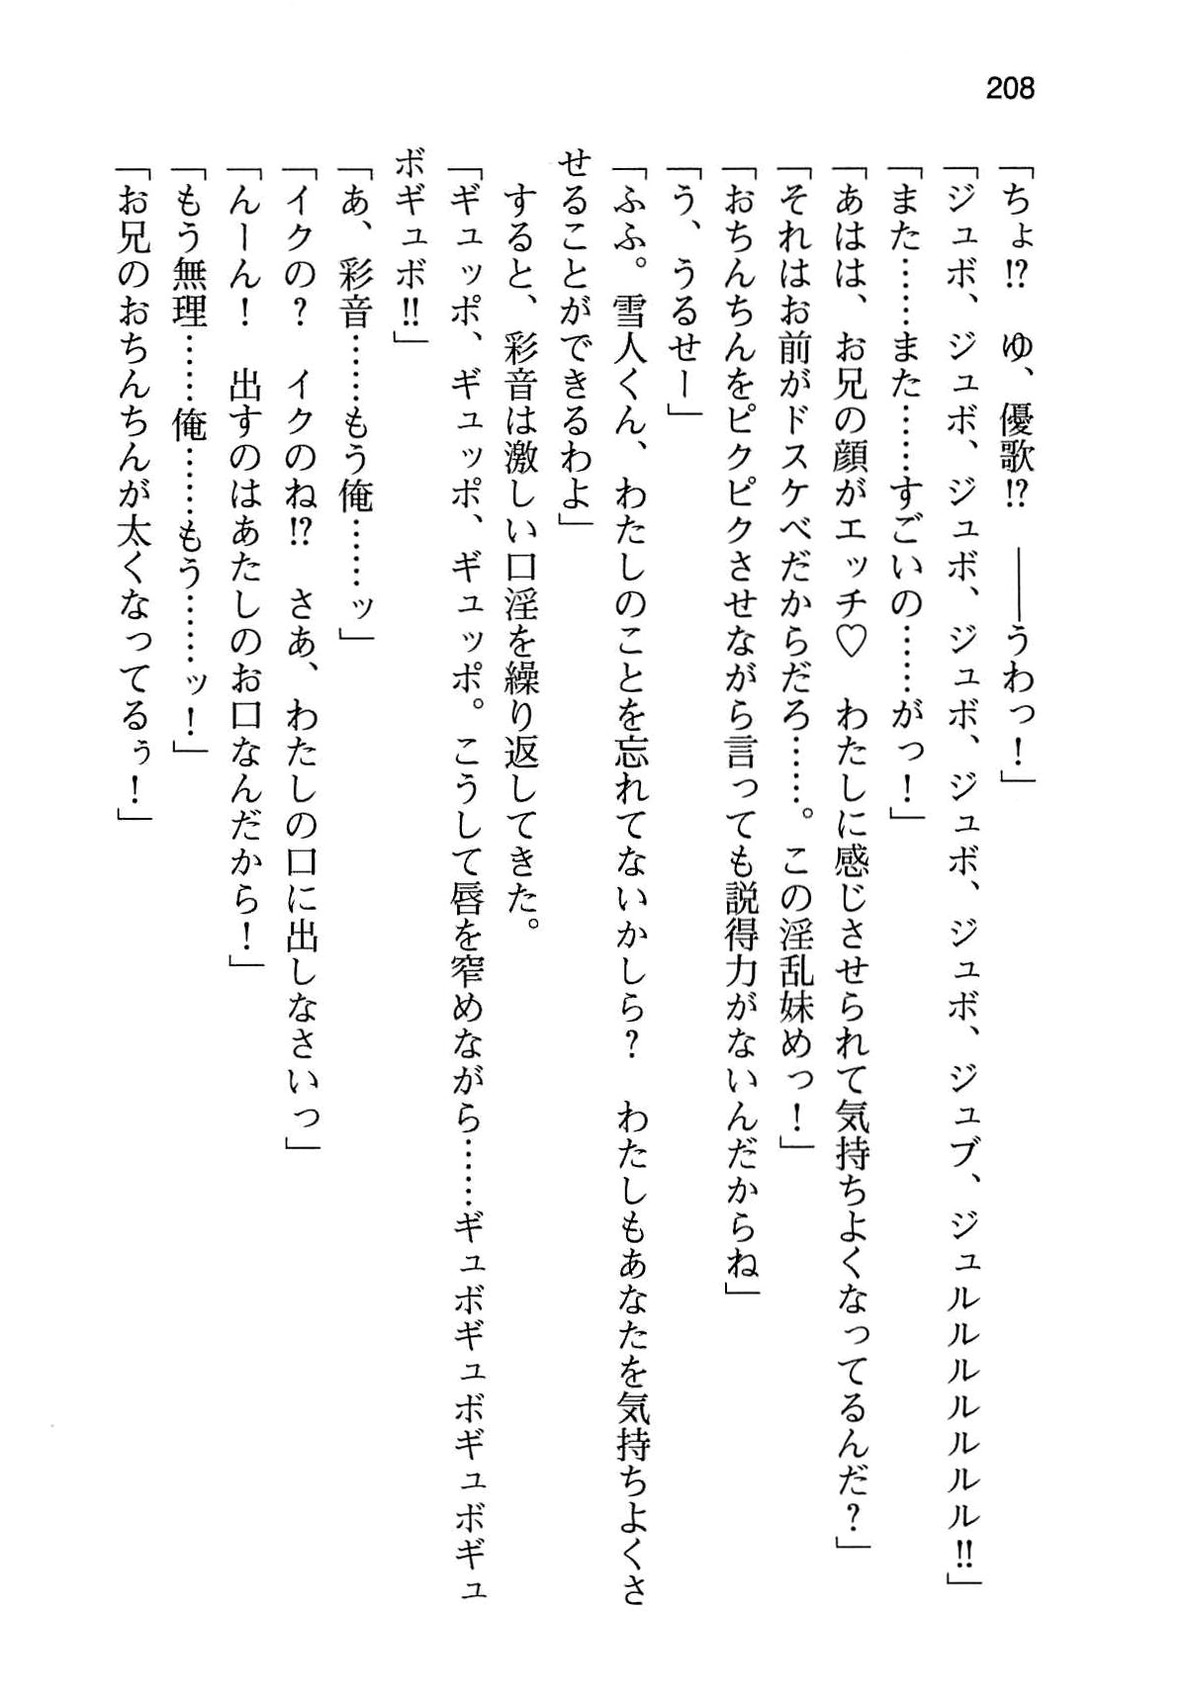 208
「ちょ!?　ゆ、優歌!?　――うわっ！」
「ジュボ、ジュボ、ジュボ、ジュボ、ジュボ、ジュボ、ジュブ、ジュルルルルルルル!!」
「また……また……すごいの……がっ！」
「あはは、お兄の顔がエッチ♡　わたしに感じさせられて気持ちよくなってるんだ？」
「それはお前がドスケベだからだろ……。この淫乱妹めっ！」
「おちんちんをピクピクさせながら言っても説得力がないんだからね」
「う、うるせー」
「ふふ。雪人くん、わたしのことを忘れてないかしら？　わたしもあなたを気持ちよくさ
せることができるわよ」
　すると、彩音は激しい口淫を繰り返してきた。
「ギュッポ、ギュッポ、ギュッポ。こうして唇を窄めながら……ギュボギュボギュボギュ
ボギュボ!!」
「あ、彩音……もう俺……ッ」
「イクの？　イクのね!?　さあ、わたしの口に出しなさいっ」
「んーん！　出すのはあたしのお口なんだから！」
「もう無理……俺……もう……ッ！」
「お兄のおちんちんが太くなってるぅ！」